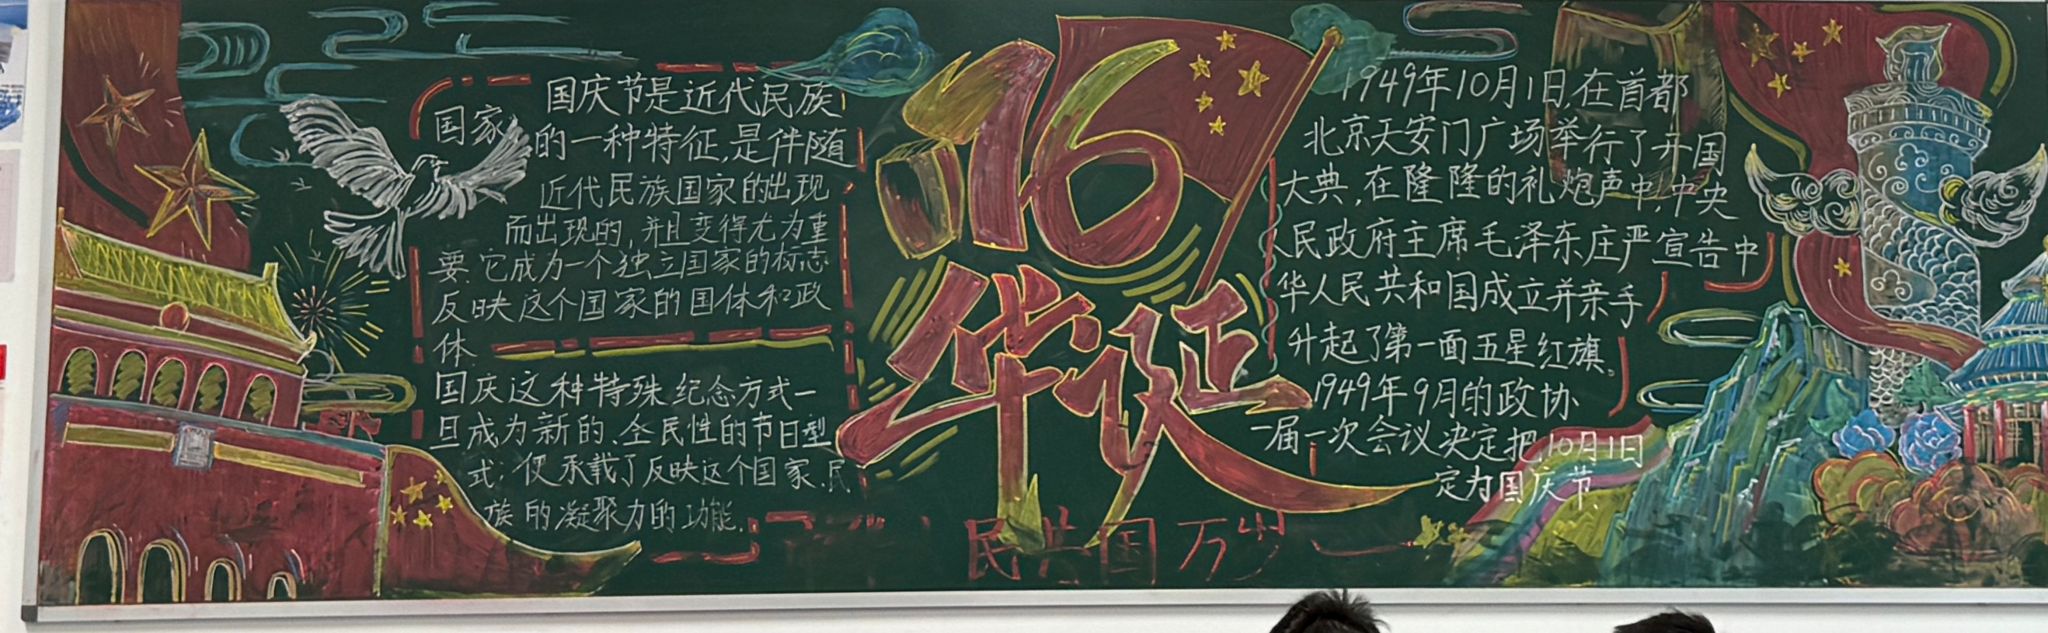 国庆节是近代民族
国家的一种特征,是伴随
近代民族国家的出现
而出现的,并且变得尤为重
要.它成为一个独立国家的标志
反映这个国家的国体和政
体.
国庆这种特殊纪念方式一
旦成为新的、全民性的节日型
式;便承载了反映这个国家.民
族的凝聚力的功能.
76
华诞
民共国万岁
1949年10月1日,在首都
北京天安门广场举行了开国
大典,在隆隆的礼炮声中,中央
人民政府主席毛泽东庄严宣告中
华人民共和国成立并亲手
升起了第一面五星红旗。
1949年9月的政协
一届一次会议决定把10月1日
定为国庆节.